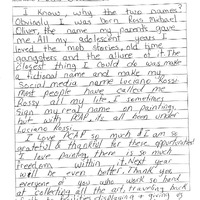 I Know, why the two names?
Obviously I was born Ross Michael
Oliver, the name my parents gave
me. All my adolescent years I
loved the mob stories, old time
gangsters and the allure of it. The
closest thing I could do was make
a fictional name and make my
Social media name Luciano Rossi.
Most people have called me
Rossy all my life. I sometimes
sign my real name on paintings,
but with LEAF, its all been under
Luciano Rossi.
I love LEAF so much. I am so
grateful & thankful for these opportunities
I love painting, there is so much
Freedom within it. Next year
will be even better. Thank you
everyone of you who work so hard
at collecting all the art, traveling back
displaying & giving of